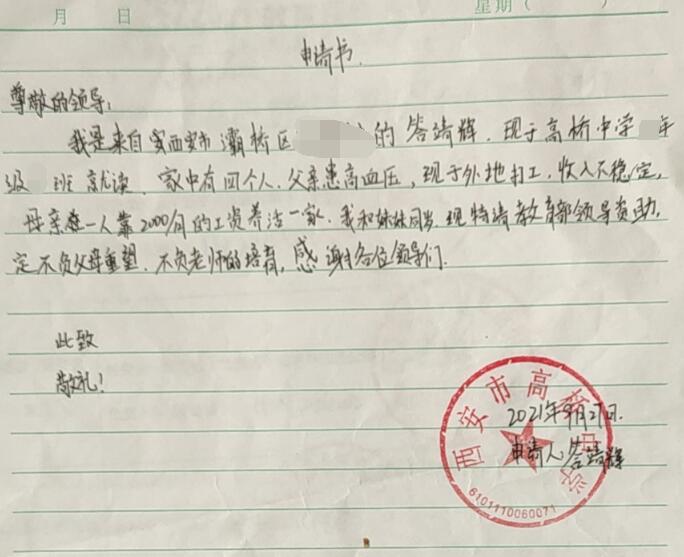 月 日 星期（ ）
申请书.
尊敬的领导:
我是来自安西安市灞桥区 的答靖辉.现于高桥中学 年
级 班就读.家中有四个人.父亲患高血压,现于外地打工,收入不稳定,
母亲 一人靠2000 的工资养活一家.我和妹妹同岁.现特请教育部领导资助,
定不负父母重望.不负老师的培育,感谢各位领导们.
此致
敬礼!
西安市高桥中学
2021年9月27日.
申请人:答靖辉
6101110060071